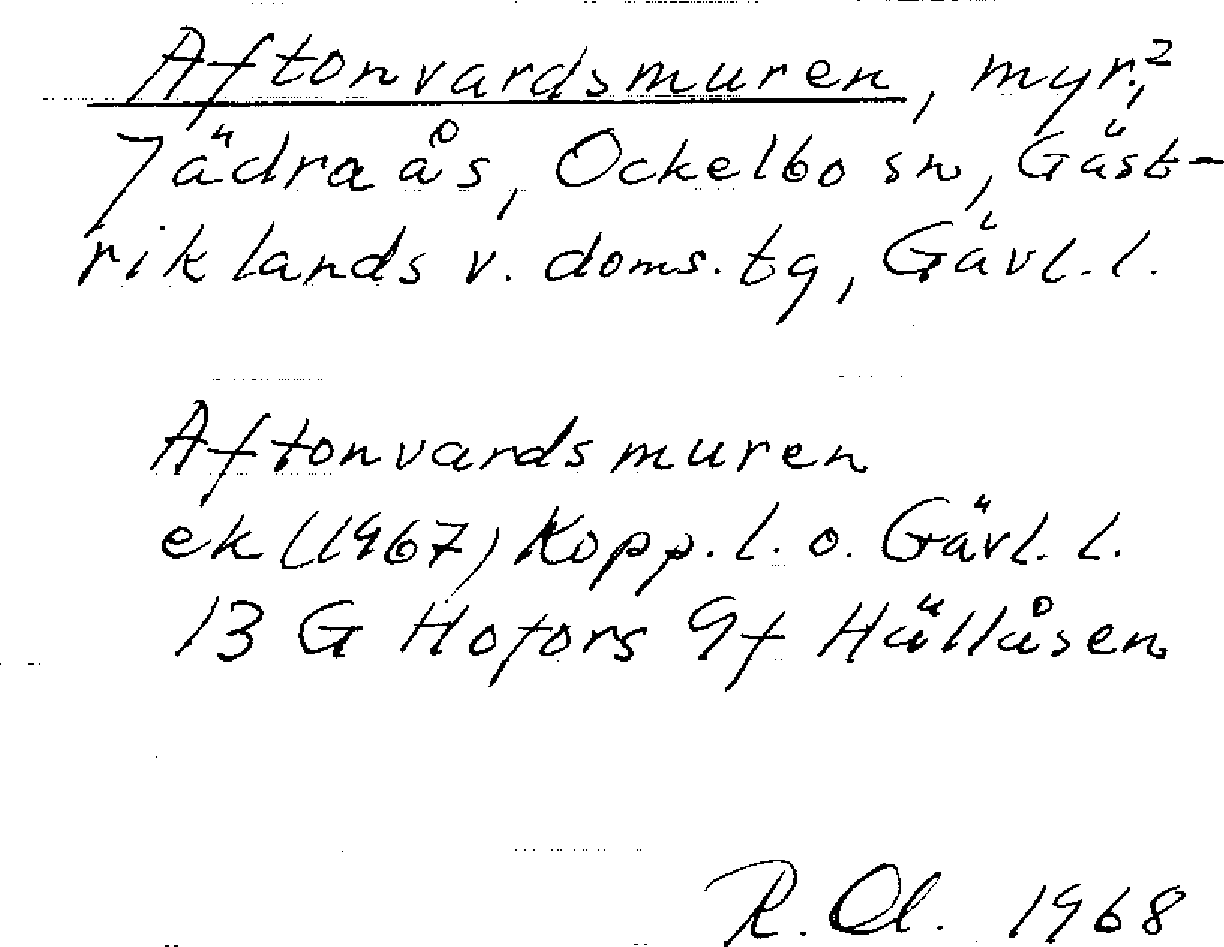 Aftonvardsmuren, myr,²
Jädraås, Ockelbo sn, Gäst-
riklands v. doms. tg, Gävl. l.
Aftonvardsmuren
ek (1967) Kopp. l. o. Gävl. l.
13 G Hofors 9f Hällåsen
R. Ol. 1968